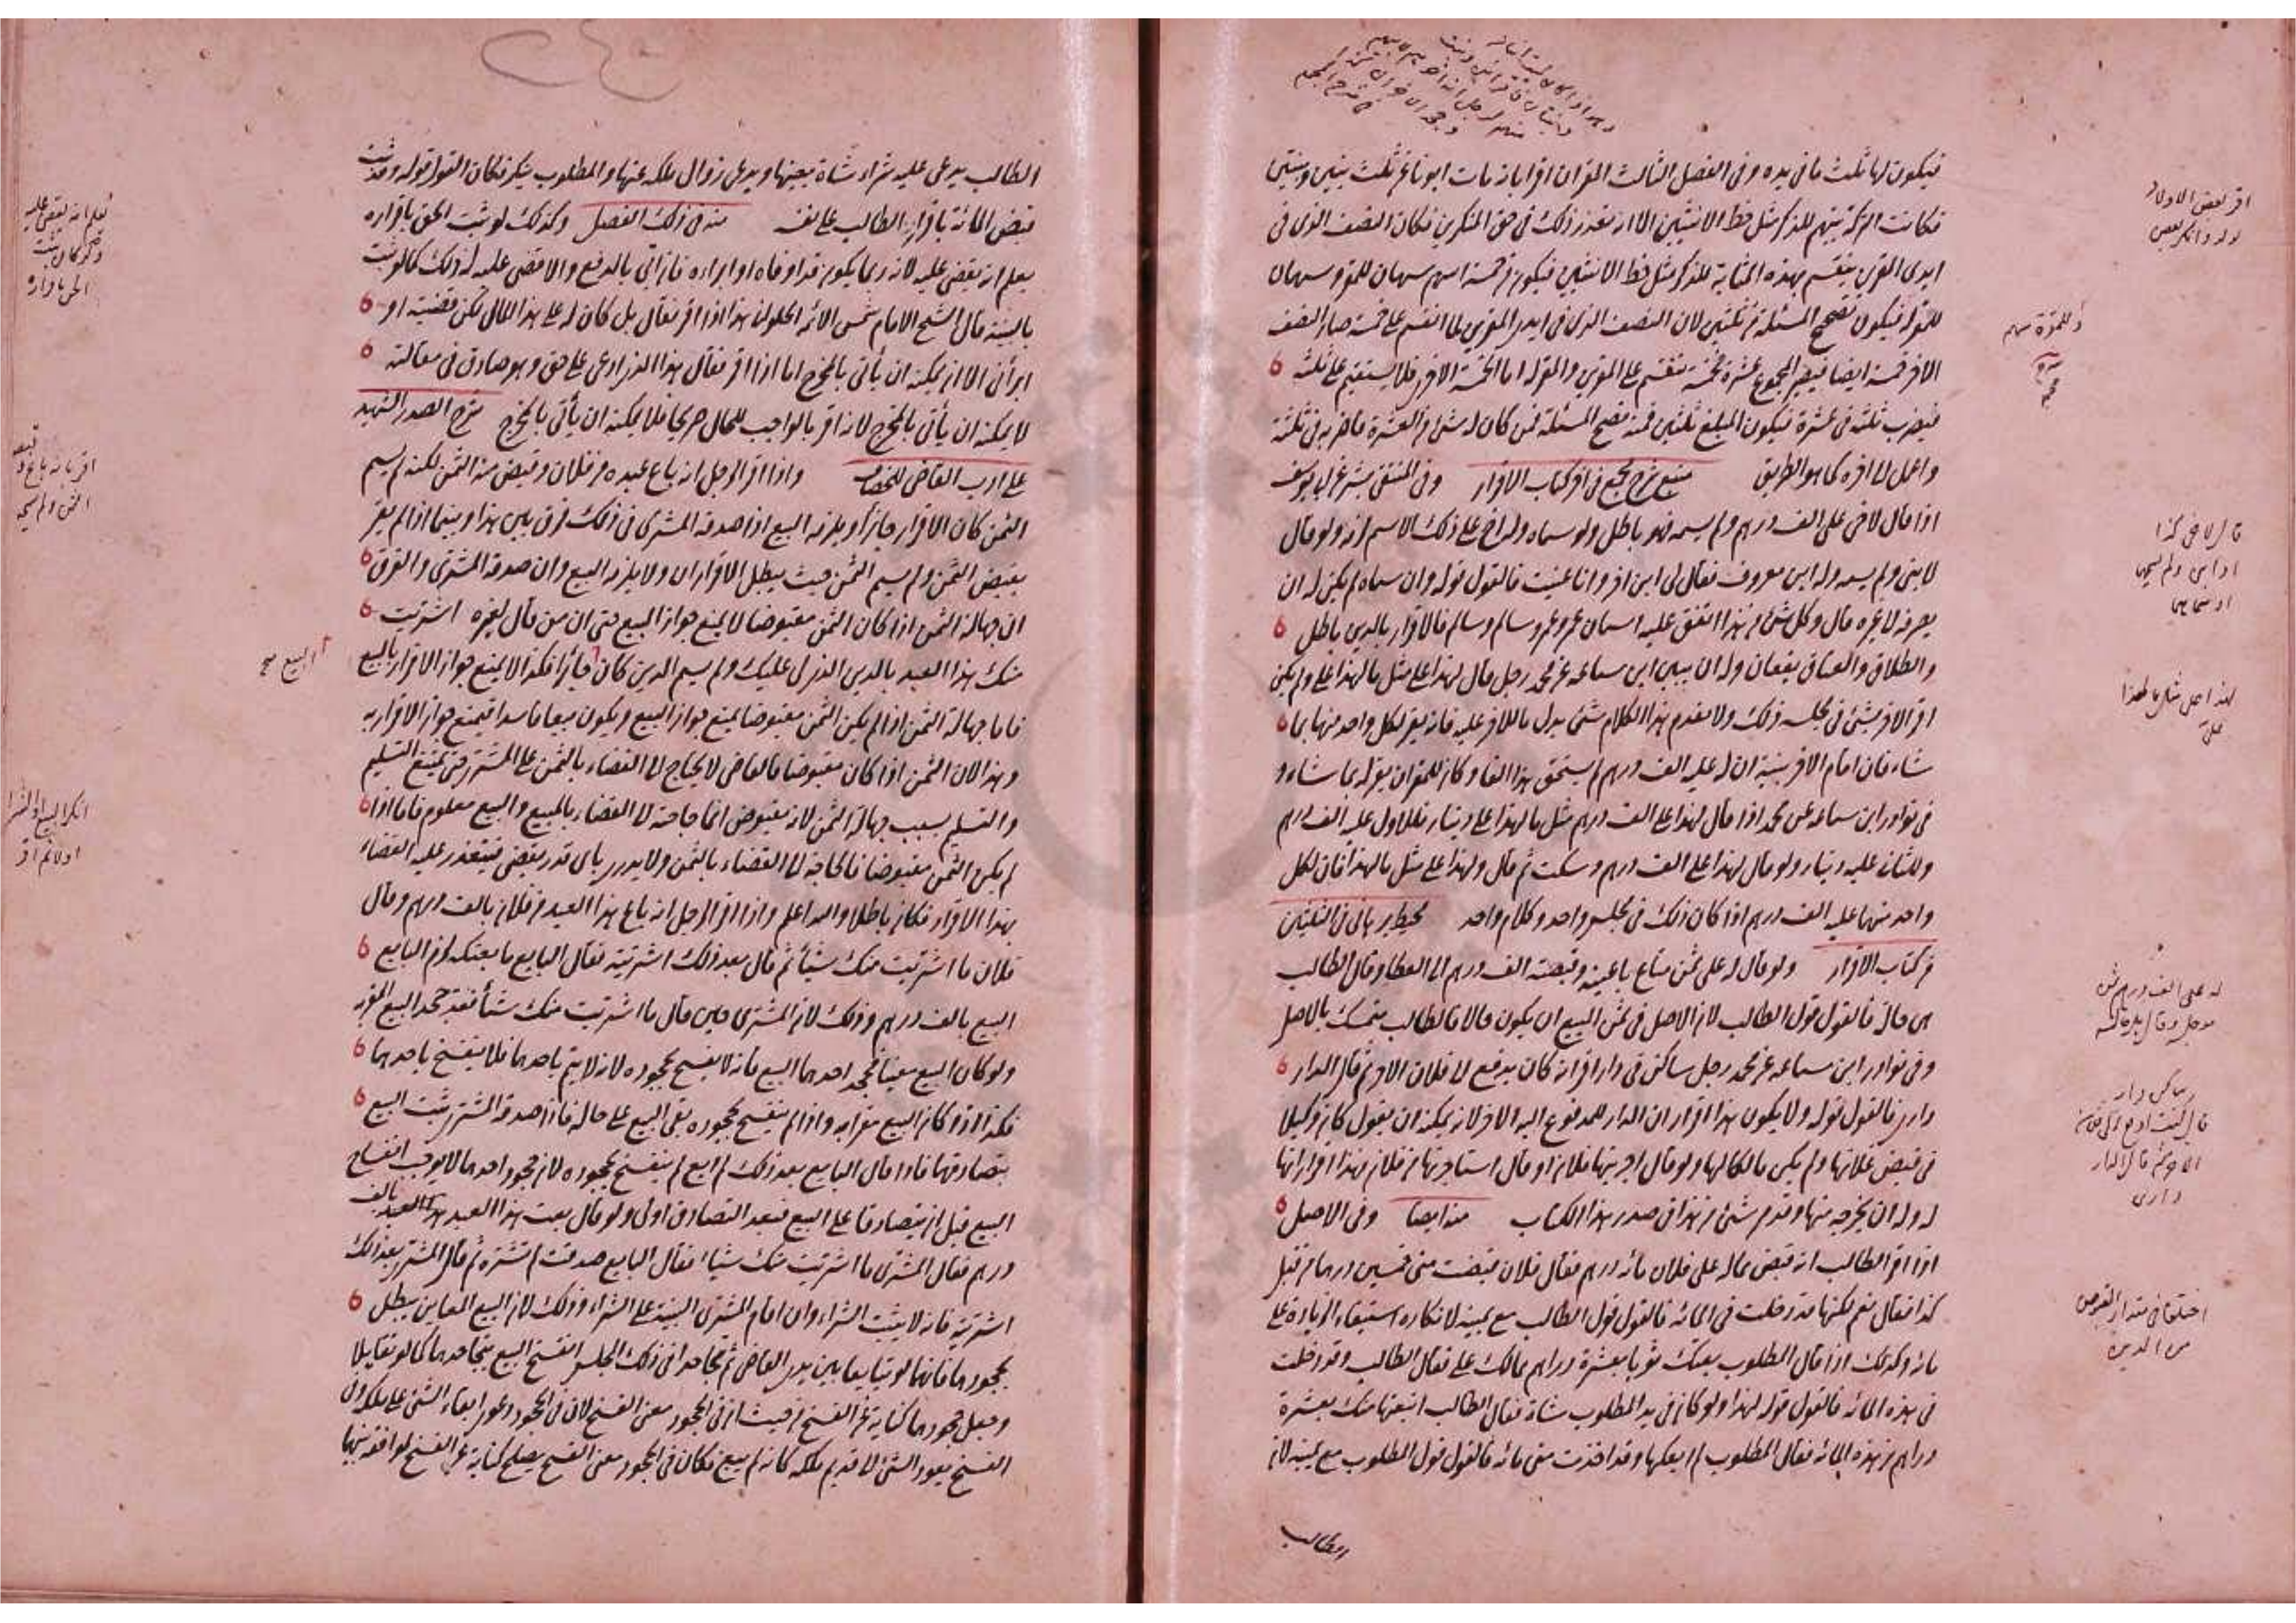 فيكون لها ثلث ما فى يده وفى الفصل الثالث المقران اقرا بانه مات ابونا عن ثلث بنين وبنتين
فكانت التركة بينهم للذكر مثل حظ الانثيين الا انه تعذر ذلك فى حق المنكرين فكان النصف الذى فى
ايدى المقرين يقسم بهذه المثابة للذكر مثل حظ الانثيين فيكون خمسة اسهم سهمان للمقر وسهمان
للمقر له فيكون تصحيح المسئلة من ثلثين لان النصف الذى فى ايدى المقرين لما انقسم على خمسة صار النصف
الاخر خمسة ايضا فيصير المجموع عشرة فخمسة تنقسم على المقرين والمقر له اما الخمسة الاخرى فلا يستقيم على ثلثة
فيضرب ثلثة فى عشرة فيكون المبلغ ثلثين فمنه تصح المسئلة فمن كان له شئ من العشرة فاضربه فى ثلثة
واعمل الى اخره كما هو الطريق منبع شرح مجمع فى اخر كتاب الاقرار وفى المنتقى بشر عن ابى يوسف
اذا قال لاخى على الف درهم ولم يسمه فهو باطل ولو سماه وله اخ على ذلك الاسم لزمه ولو قال
لابنى ولم يسمه وله ابن معروف فقال لى ابن اخر وانا عنيت فالقول قوله وان سماه لم يكن له ان
يصرفه لا غيره قال وكل شئ من هذا اتفق عليه اسمان عمرو عمرو وسالم وسالم فالاقرار بالدين باطل
والطلاق والعتاق يقعان وله ان يبين ابن سماعه عن محمد رجل قال لهذا على مثل ما لهذا على ولم يكن
اقر لاخر بشئ فى مجلسه ذلك ولا تقدم هذا الكلام شئ يدل ما للاخر عليه فانه يقر لكل واحد منهما بما
شاء فان اقام الاخر بينة ان له عليه الف درهم لم يستحق هذا الفا وكان للمقر ان يقر له بما شاء و
فى نوادر ابن سماعه عن محمد اذا قال لهذا على الف درهم مثل ما لهذا على دينار فللاول عليه الف درهم
وللثانى عليه دينار ولو قال لهذا على الف درهم وسكت ثم قال ولهذا على مثل ما لهذا فان لكل
واحد منهما عليه الف درهم اذا كان ذلك فى مجلس واحد وكلام واحد محيط برهانى فى الثلثين
من كتاب الاقرار ولو قال له على ثمن متاع باعنيه وقبضته الف درهم الى العطا وقال الطالب
هى حالة فالقول قول الطالب لان الاصل فى ثمن البيع ان يكون حالا فالطالب متمسك بالاصل
وفى نوادر ابن سماعه عن محمد رجل ساكن فى دار اقر انه كان يدفع الى فلان الاجر ثم قال الدار
دارى فالقول قوله ولا يكون هذا اقرار ان الدار للمدفوع اليه الاجر لانه يمكنه ان يقول كان وكيلا
فى قبض غلاتها ولم يكن مالكا لها ولو قال اجرنيها فلان او قال استاجرتها من فلان فهذا اقرار انها
له وله ان يخرجه منها وتقدم شئ من هذا فى صدر هذا الكتاب منه ايضا وفى الاصل
اذا اقر الطالب انه قبض مما له على فلان مائه درهم فقال فلان قبضت منى خمسين درهما من قبل
كذا فقال نعم لكنها قد دخلت فى المائه فالقول قول الطالب مع يمينه لانكاره استيفاء الزيادة على
مائه وكذلك اذا قال المطلوب بعتك ثوبا بعشرة دراهم مما لك على فقال الطالب وقد دخلت
فى هذه المائه فالقول قوله لهذا ولو كان فى يد المطلوب شاة فقال الطالب ابتعتها منك بعشرة
دراهم من هذه المائه فقال المطلوب لم ابعكها وقد اخذت منى مائه فالقول قول المطلوب مع يمينه لان
الطالب
اقر بعض الاولاد
لولد وانكر بعض
وللمقرة سهم
صح
قال لاخى كذا
او ابنى ولم يسمه
او سماهما
لهذا على مثل ما لهذا
على
له على الف درهم ثمن
مؤجل وقال بل حالة
ساكن دار
قال كنت ادفع الى فلان
الاجر ثم قال الدار
دارى
اختلفا فى مقدار القبوض
من الدين
الطالب يدعى عليه شراء شاة بعينها ويدعى زوال ملكه عنها والمطلوب ينكر فكان القول قوله وقد ثبت
قبض المائة باقرار الطالب على نفسه منه فى ذلك الفصل وكذلك لو ثبت الحق باقراره
يعلم انه يقضى عليه لانه ربما يكون قد اوفاه او ابراه فان اتى بالدفع والا قضى عليه له ذلك كما لو ثبت
بالبينة قال الشيخ الامام شمس الائمه الحلوانى هذا اذا اقر فقال بل كان له على هذا المال لكن قضيته او
ابرأنى الا انه يمكنه ان يأتى بالمخرج اما اذا اقر فقال هذا الذى ادعى على حق وهو صادق فى مقالته
لا يمكنه ان يأتى بالمخرج لانه اقر بالواجب للحال صريحا فلا يمكنه ان يأتى بالمخرج شرح الصدر الشهيد
على ادب القاضى للخصاف واذا اقر الرجل انه باع عبده من فلان وقبض منه الثمن لكنه لم يسم
الثمن كان الاقرار جائزا ويلزمه البيع اذا صدقه المشترى فى ذلك فرق بين هذا وبينما اذا لم يقر
بقبض الثمن ولم يسم الثمن حيث يبطل الاقرار ولا يلزمه البيع وان صدقه المشترى والفرق
ان جهالة الثمن اذا كان الثمن مقبوضا لا يمنع جواز البيع حتى ان من قال لغيره اشتريت
منك هذا العبد بالدين الذى لى عليك ولم يسم الدين كان جائزا فكذا لا يمنع جواز الاقرار بالبيع
فاما جهالة الثمن اذا لم يكن الثمن مقبوضا يمنع جواز البيع ويكون بيعا فاسدا فيمنع جواز الاقرار به
وهذا لان الثمن اذا كان مقبوضا فالقاضى لا يحتاج الى القضاء بالثمن على المشترى حتى يمتنع التسليم
والتسلم بسبب جهالة الثمن لانه مقبوض انما حاجته الى القضاء بالمبيع والمبيع معلوم فاما اذا
لم يكن الثمن مقبوضا فالحاجة الى القضاء بالثمن ولا يدرى باى قدر يقضى فيتعذر عليه القضاء
بهذا الاقرار فكان باطلا والله اعلم واذا اقر الرجل انه باع هذا العبد من فلان بالف درهم وقال
فلان ما اشتريت منك شيئا ثم قال بعد ذلك اشتريته فقال البايع ما بعتكه لزم البايع
البيع بالف درهم وذلك لان المشترى حين قال ما اشتريت منك شيئا فقد جحد البيع المقر به
ولو كان البيع معينا فجحد احدهما البيع فانه لا ينفسخ بجحوده لانه لا يتم باحدهما فلا ينفسخ باحدهما
فكذا اذا كان البيع مقرا به واذا لم ينفسخ بجحوده بقى البيع على حاله فاذا صدقه المشترى ثبت البيع
بتصادقهما فاذا قال البايع بعد ذلك لم ابع لم ينفسخ بجحوده لان جحود احدهما لا يوجب انفساخ
البيع قبل ان يتصادقا على البيع فبعد التصادق اولى ولو قال بعت هذا العبد بالف
درهم فقال المشترى ما اشتريت منك شيئا فقال البايع صدقت لم تشتره ثم قال المشترى بعد ذلك
اشتريته فانه لا يثبت الشراء وان اقام المشترى البينة على الشراء وذلك لان البيع المعاين يبطل
بجحودهما فانهما لو تبايعا بين يدى القاضى ثم تجاحدا فى ذلك المجلس انفسخ البيع بتجاحدهما كما لو تقايلا
وجعل جحودهما كناية عن الفسخ من حيث ان فى الجحود معنى الفسخ لان فى الجحود دعوى ابقاء الشئ على ملكه وفى
الفسخ يعود الشئ الى قديم ملكه كانه لم يبع فكان فى الجحود معنى الفسخ يصلح كناية عن الفسخ لموافقة بينهما
البيع صح
يعلم انه يقضى عليه
وكذلك لو ثبت
الحق باقراره
اقر بانه باع وقبض
الثمن ولم يسمه
انكر البيع او الشرا
اولا ثم اقر